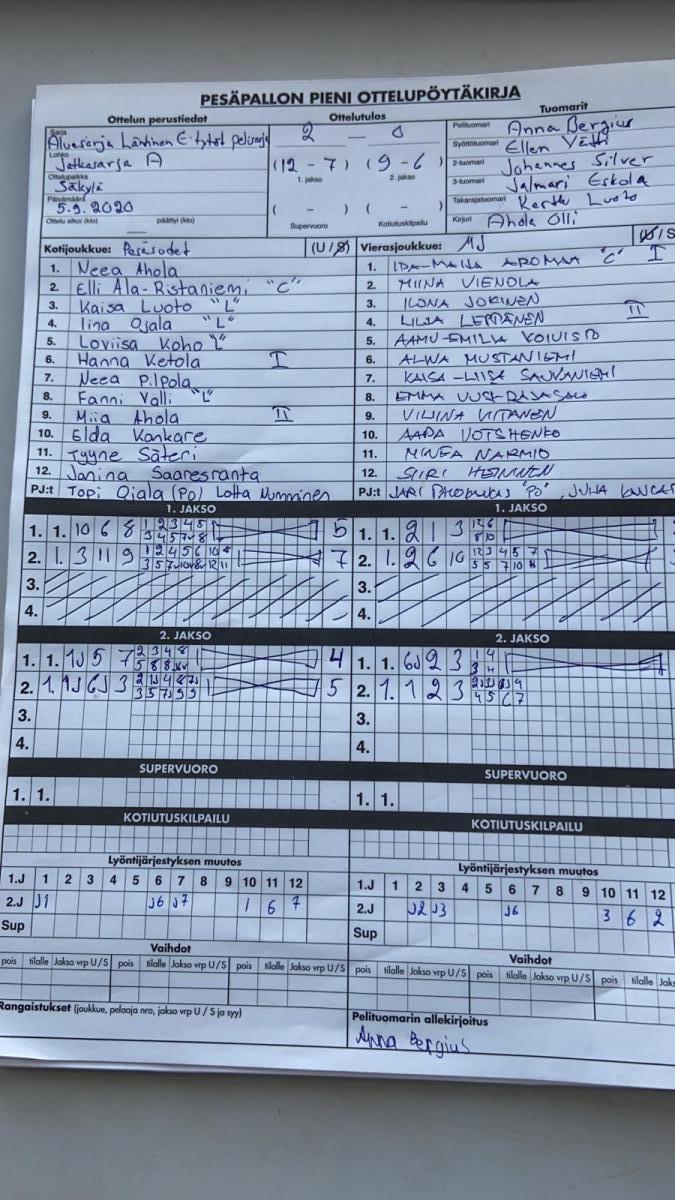 PESÄPALLON PIENI OTTELUPÖYTÄKIRJA
Ottelun perustiedot
Sarja
Aluesarja Läntinen E-tytöt
Lohko
Jatkosarja A
Ottelupaikka
Säkylä
Päivämäärä
5.9.2020
Ottelu alkoi (klo) päättyi (klo)
Ottelutulos
2 - 0
(12 - 7) (9 - 6)
1. jakso 2. jakso
( - ) ( - )
Supervuoro Kotiutuskilpailu
Tuomarit
Pelituomari Anna Bergius
Syöttötuomari Ellen
2-tuomari Johannes Silver
3-tuomari Jalmari Eskola
Takarajatuomari Kerttu Luoto
Kirjuri Ahola Olli
Kotijoukkue: Pesäsudet (U/S)
1. Neea Ahola
2. Elli Ala-Ristaniemi "C"
3. Kaisa Luoto "L"
4. Iina Ojala "L"
5. Loviisa Koho "L"
6. Hanna Ketola I
7. Neea Pilpola
8. Fanni Valli "L"
9. Miia Ahola II
10. Elda Kankare
11. Tyyne Säteri
12. Janina Saaresranta
PJ:t Topi Ojala (PO) Lotta Numminen
Vierasjoukkue: MJ (U/S
1. IDA-MAIJA AROMAA "C" I
2. MIINA VIENOLA
3. ILONA JOKINEN
4. LILJA LEPPÄNEN II
5. AAMU-EMILIA KOIVISTO
6. ALWA MUSTANIEMI
7. KAISA-LIISA SAUVANIEMI
8. EMMA
9. VILIINA VIITANEN
10. AADA VOTSHENKO
11. MINEA NARMIO
12. SIIRI HEINONEN
PJ:t JARI "PO", JULIA
1. JAKSO
1. 1. 10 6 8 5
2. 1. 3 11 9 7
3.
4.
1. JAKSO
1. 1. 2 1 3
2. 1. 2 6 10
3.
4.
2. JAKSO
1. 1. 1J 5 7 4
2. 1. 1J 6J 3 5
3.
4.
2. JAKSO
1. 1. 6J 2 3
2. 1. 1 2 3
3.
4.
SUPERVUORO
1. 1.
SUPERVUORO
1. 1.
KOTIUTUSKILPAILU
KOTIUTUSKILPAILU
Lyöntijärjestyksen muutos
1.J 1 2 3 4 5 6 7 8 9 10 11 12
2.J J1 J6 J7 1 6 7
Sup
Lyöntijärjestyksen muutos
1.J 1 2 3 4 5 6 7 8 9 10 11 12
2.J J2 J3 J6 3 6 2
Sup
Vaihdot
pois tilalle Jakso vrp U/S pois tilalle Jakso vrp U/S pois tilalle Jakso vrp U/S
Vaihdot
pois tilalle Jakso vrp U/S pois tilalle Jakso vrp U/S pois tilalle Jak
Rangaistukset (joukkue, pelaaja nro, jakso vrp U / S ja syy)
Pelituomarin allekirjoitus
Anna Bergius